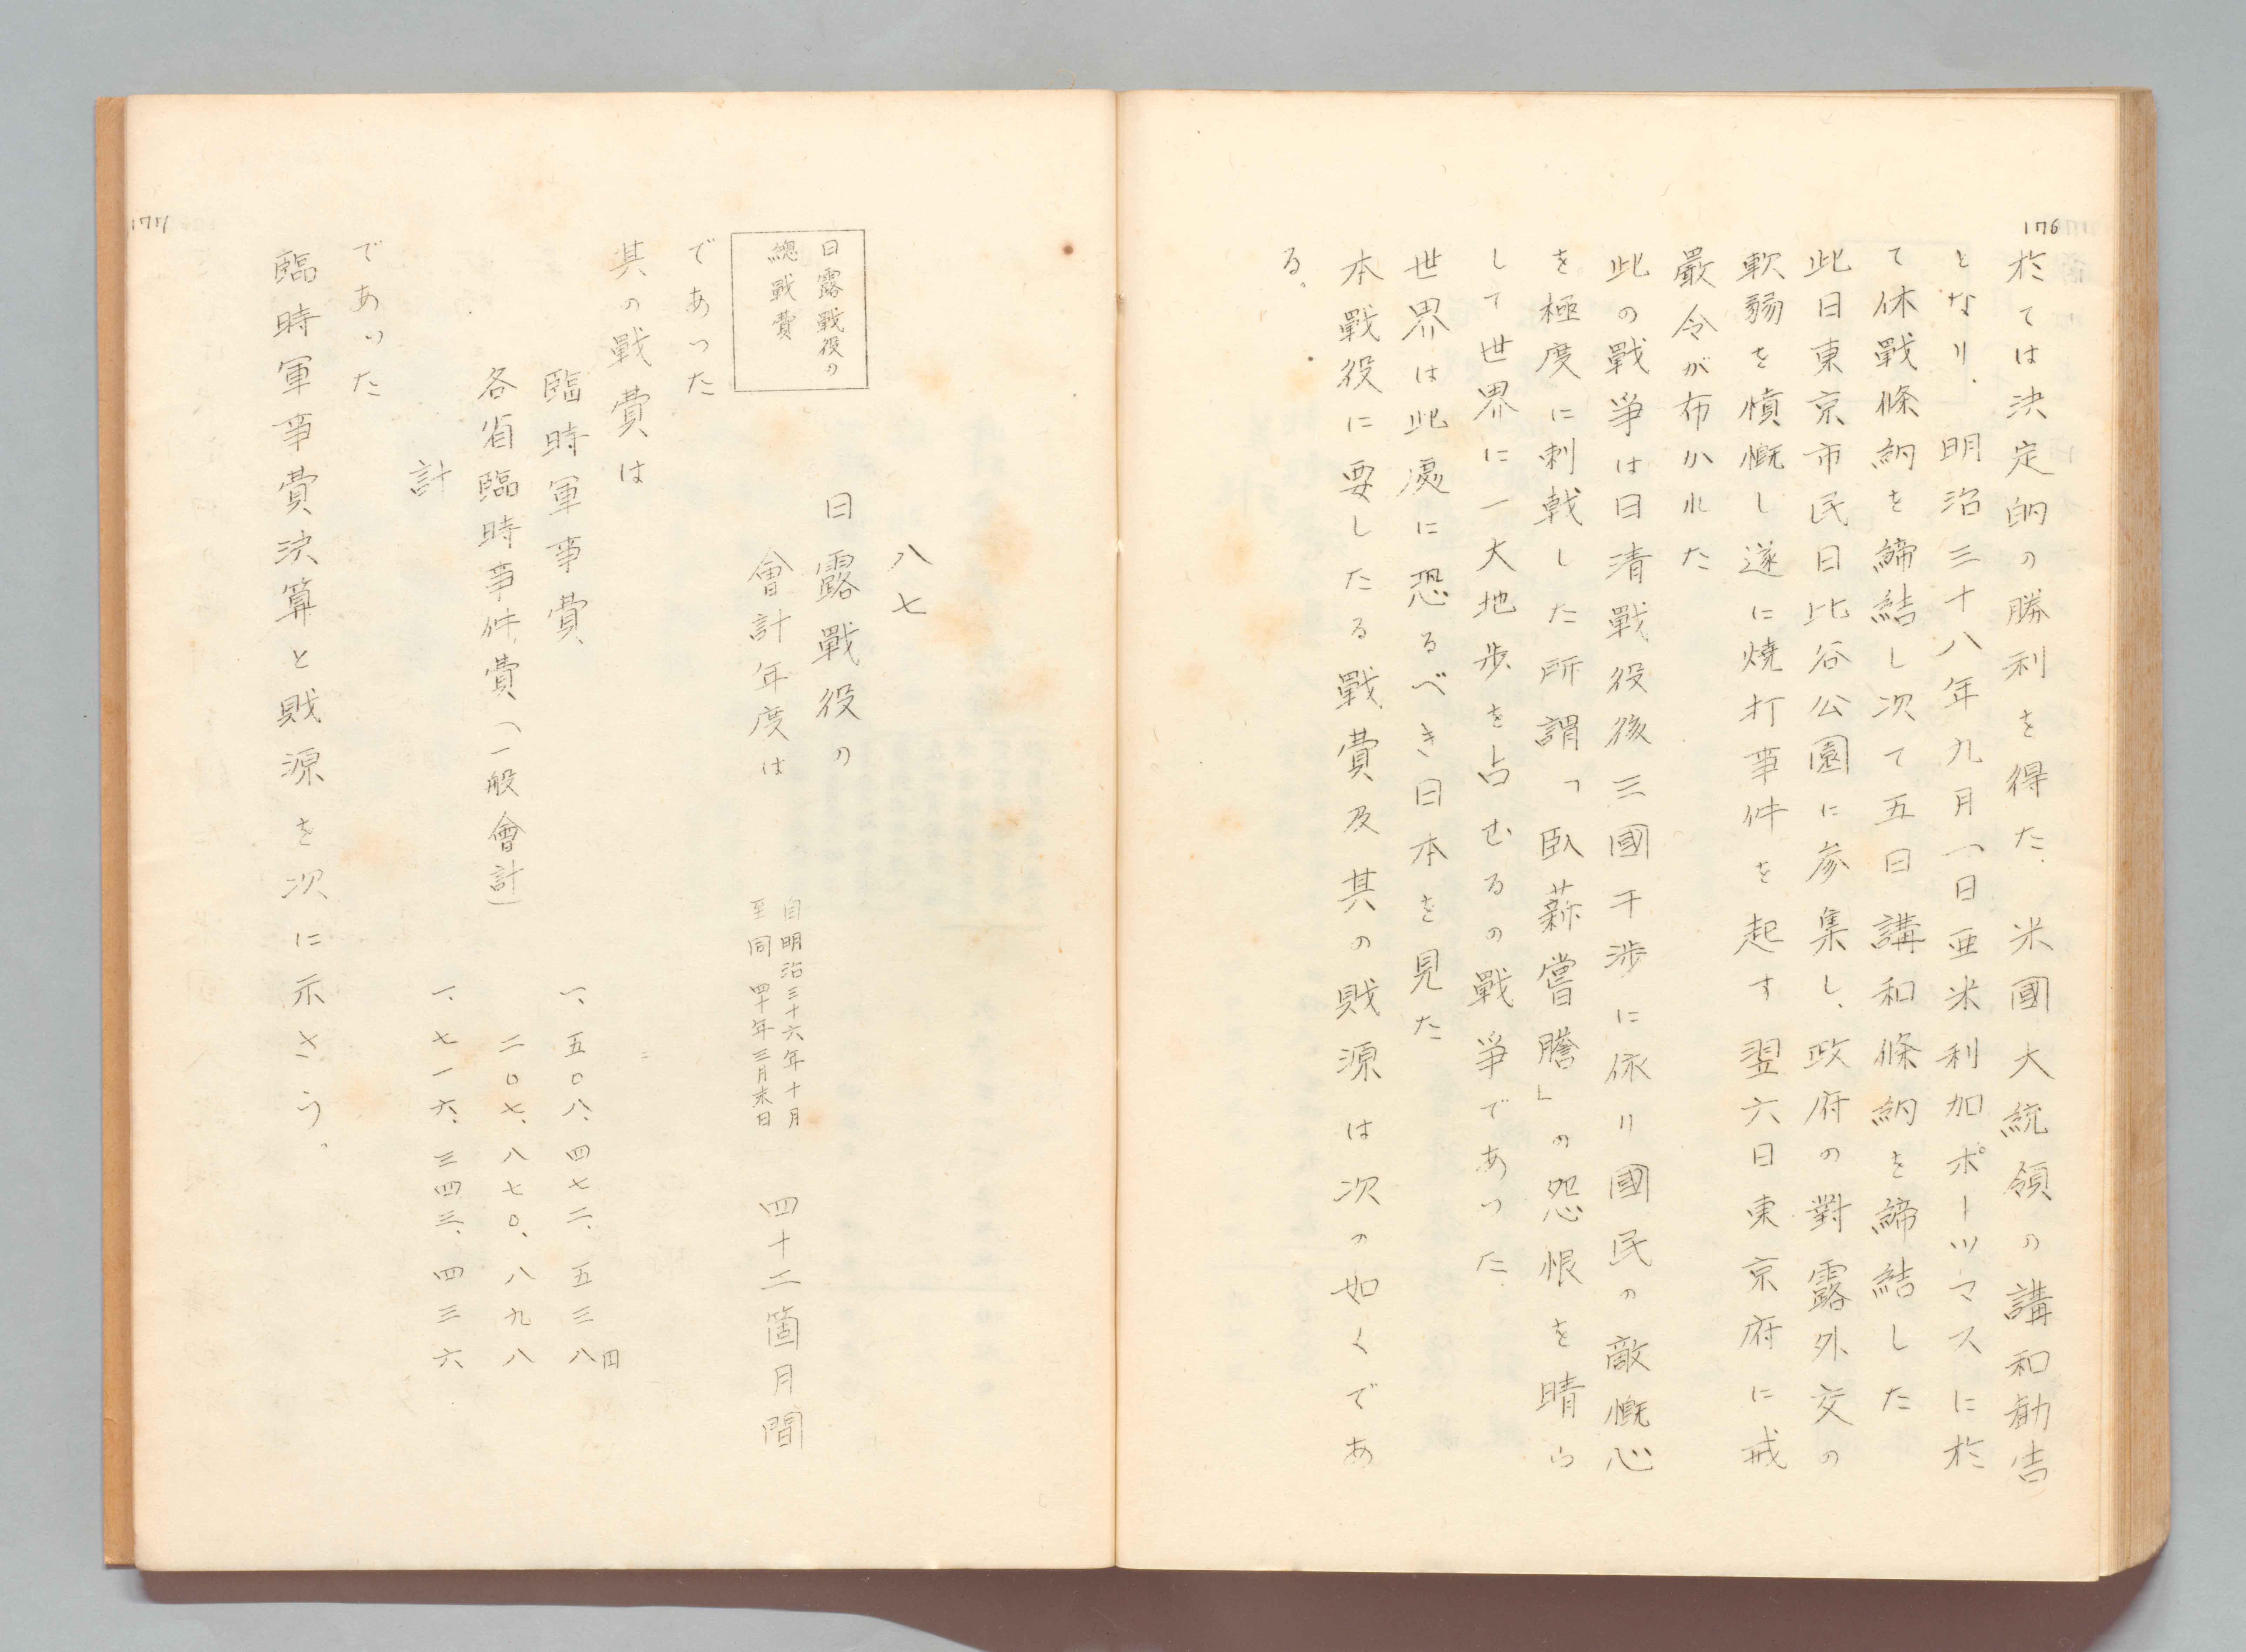 176
於ては決定的の勝利を得た、米國大統領の講和勧告
となり、明治三十八年九月一日亜米利加ポーツマスに於
て休戰條納を締結し次て五日講和條納を締結した
此日東京市民日比谷公園に参集し、政府の對露外交の
軟弱を憤慨し遂に焼打事件を起す翌六日東京府に戒
嚴令が布かれた
此の戰爭は日清戰役後三國干渉に依り國民の敵慨心
を極度に刺戟した所謂「臥薪嘗膽」の怨恨を晴ら
して世界に一大地歩を占むるの戰爭であった、
世界は此處に恐るべき日本を見た
本戰役に要したる戰費及其の財源は次の如くであ
る。
177
八七
日露戰役の
總戰費
日露戰役の
會計年度は
自明治三十六年十月
至同四十年三月末日
四十二箇月間
であった
其の戰費は
臨時軍事費 一、五〇八、四七二、五三八円
各省臨時事件費(一般會計) 二〇七、八七〇、八九八
計 一、七一六、三四三、四三六
であった
臨時軍事費決算と財源を次に示さう。